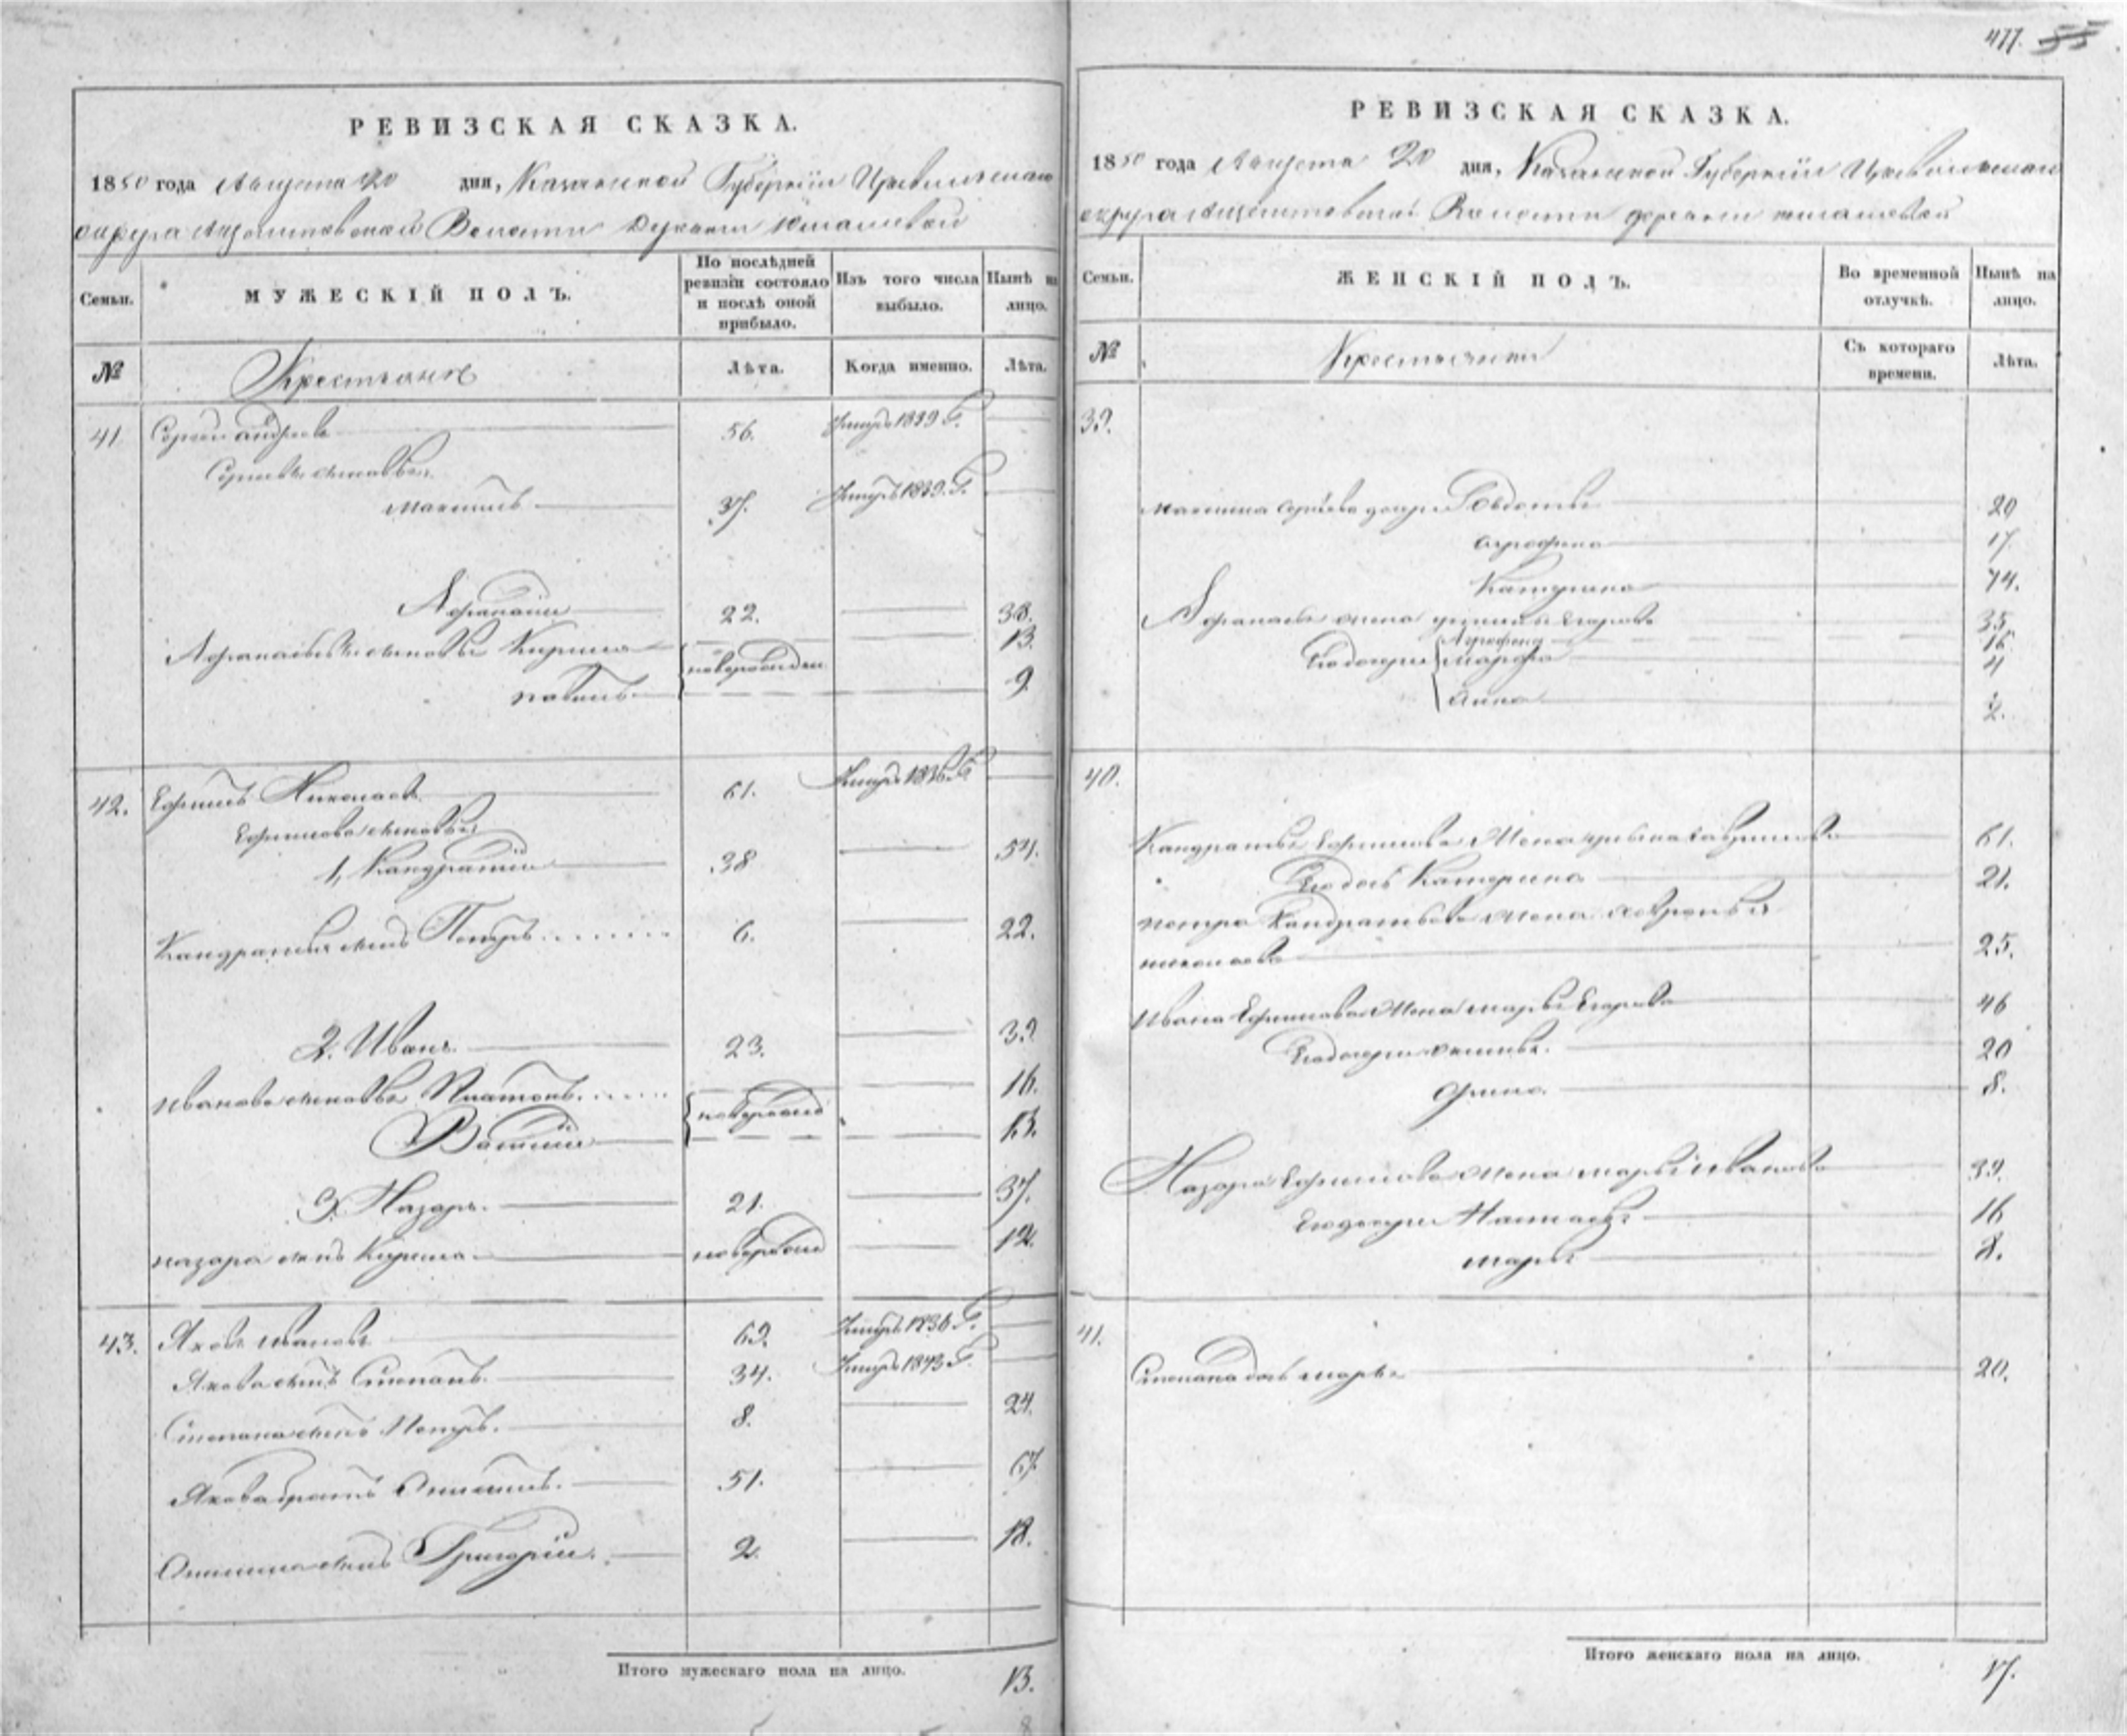 РЕВИЗСКАЯ СКАЗКА.
1850 года Августа 20 дня, Казанской Губернiи Цывильскаго
округа Волости Деревни Юмашевой
Семьи. МУЖЕСКIЙ ПОЛЪ. По послѣдней ревизiи состояло и послѣ оной прибыло. Изъ того числа выбыло. Нынѣ на лицо.
№ Крестьяне Лѣта. Когда именно. Лѣта.
41 Сергѣй Андреевъ 56. Умеръ 1839 Г.
Сергѣевы сыновья
Максимъ 37. Умеръ 1839. Г.
Афанасiй 22. 38.
Афанасьевы сыновья Кирила новорожден 13.
Павелъ 9.
42. Ефимъ Николаевъ 61. Умеръ 1836 Г.
Ефимова сыновья
1, Кандратiй 38 54.
Кандратья сынъ Петръ 6. 22.
2. Иванъ 23. 39
Иванова сыновья Платонъ новорожд 16.
Василiй 13.
3. Назаръ. 21. 37.
Назара сынъ Кирила новорожд 12.
43. Яковъ Ивановъ 69. Умеръ 1836 Г.
Якова сынъ Степанъ. 34. Умеръ 1843 Г.
Степана сынъ Петръ. 8. 24.
Якова братъ 51. 67
сынъ Григорiй. 2. 18.
Итого мужескаго пола на лицо. 13.
477. 55
РЕВИЗСКАЯ СКАЗКА.
1850 года Августа 20 дня, Казанской Губернiи Цывильскаго
округа Волости деревни Юмашевой
Семьи. ЖЕНСКIЙ ПОЛЪ. Во временной отлучкѣ. Нынѣ на лицо.
№ Крестьянки Съ котораго времени. Лѣта.
39.
Максима Сергѣева дочери Овдотья 20
Аграфена 17.
Катерина 14.
Афанасья жена Егорова 35
Его дочери Аграфена 16
Марфа 4
Анна 2.
40.
Кандратья Ефимова жена Гаврилова 61.
Его дочь Катерина 21.
Петра Кандратьева жена
Николаева 25.
Ивана Ефимова жена Марья Егорова 46
Его дочери 20
Орина 8.
Назара Ефимова жена Марья Иванова 39.
Его дочери Настасья 16
Марья 8.
41.
Степана дочь Марья 20.
Итого женскаго пола на лицо. 17.